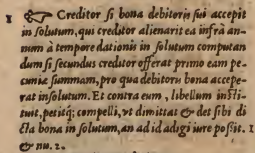 1 ☞ Creditor si bona debitoris sui accepit
in solutum, qui creditor alienarit ea infrà an-
num à tempore dationis in solutum computan
dum si secundus creditor offerat primo eam pe-
cuniæ summam, pro qua debitoris bona accepe-
rat in solutum. Et contra eum, libellum insti-
tuit, petitq́; compelli, vt dimittat & det sibi di
cta bona in solutum, an ad id adigi iure possit. 1
& nu. 2.